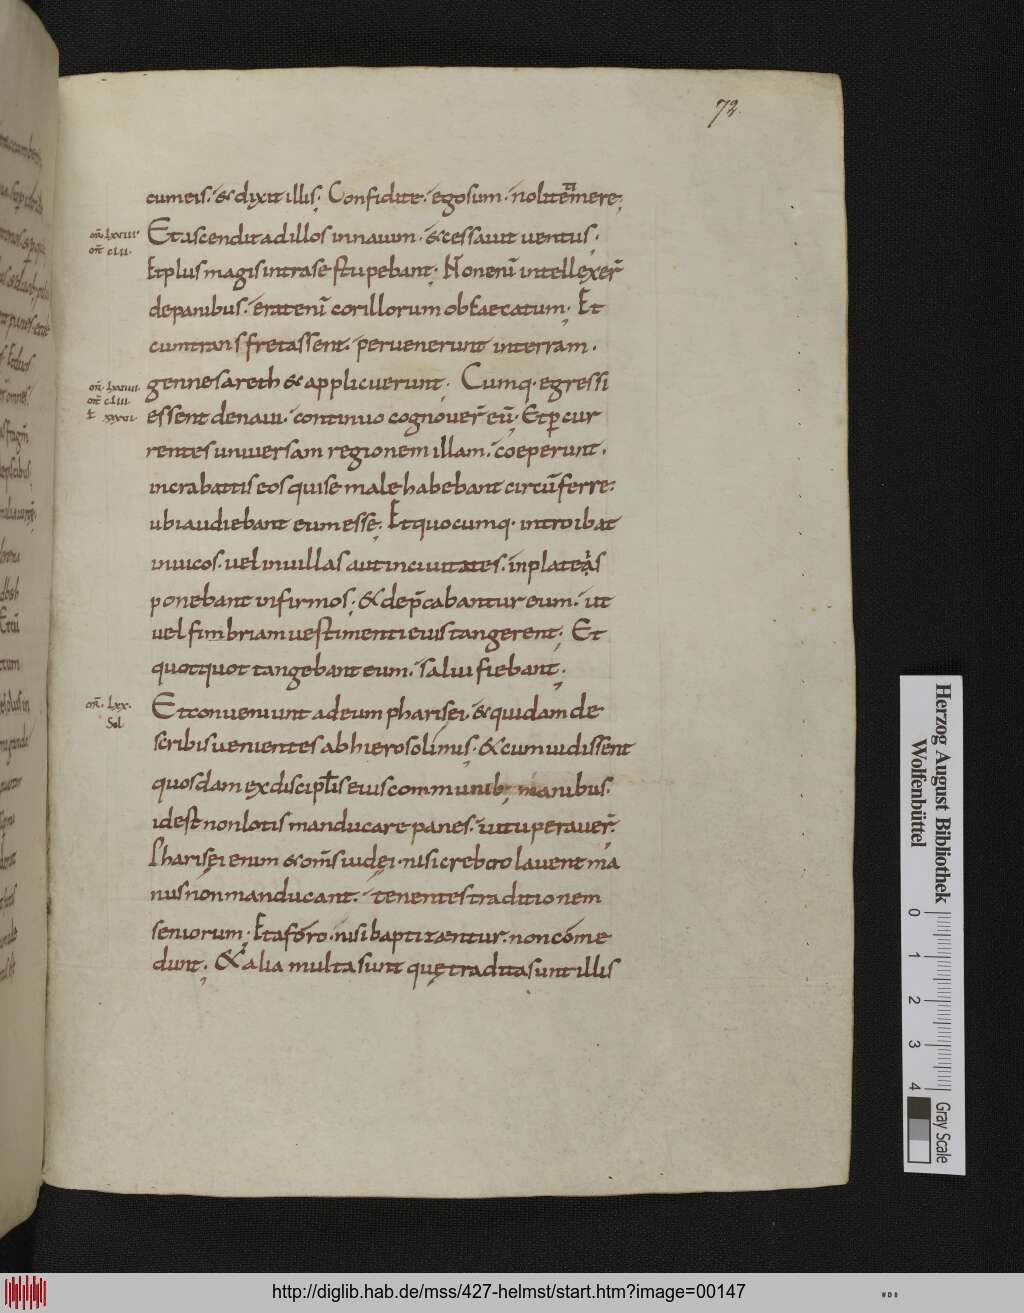 72.
cum eis. & dixit illis; Confidite. ego sum. nolite timere;
Et ascendit ad illos in nauim. & cessauit uentus;
Et plus magis intra se stupebant; Non eni̅ intellexer̅
de panibus. erat eni̅ cor illorum obcaecatum; Et
cum transfretassent. peruenerunt in terram.
gennesareth & applicuerunt; Cumq· egressi
essent de naui. continuo cognouer̅ eu̅; Et p̱cur
rentes uniuersam regionem illam. coeperunt.
in crabattis eos qui se male habebant circu̅ferre.
ubi audiebant eum esse; Et quocumq· introibat
in uicos. uel in uillas aut in ciuitates. in plateas
ponebant infirmos; & dep̅cabantur eum. ut
uel fimbriam uestimenti eius tangerent; Et
quotquot tangebant eum. salui fiebant;
Et conueniunt ad eum pharisei. & quidam de
scribis uenientes ab hierosolimis; & cum uidissent
quosdam ex discipl̅is eius communib; manibus.
id est non lotis manducare panes. uituperauer̅;
Pharisęi enim & om̅s iudęi. nisi crebro lauent ma
nus non manducant. tenentes traditionem
seniorum; Et a foro. nisi baptizentur. non come
dunt; & alia multa sunt quę tradita sunt illis
Herzog August Bibliothek
Wolfenbüttel
0 1 2 3 4
Gray Scale
http://diglib.hab.de/mss/427-helmst/start.htm?image=00147